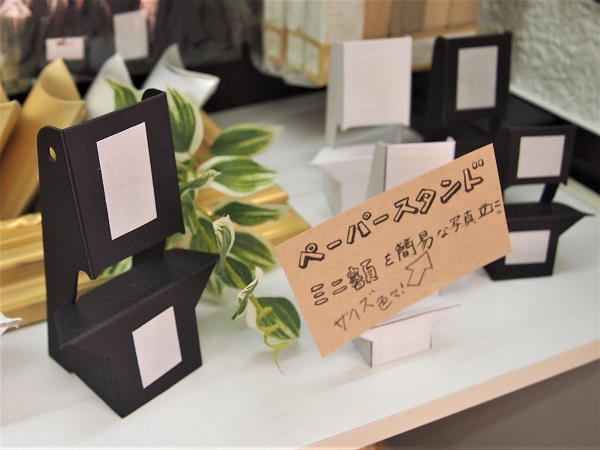 ペーパースタンド
ミニ額を簡易な写真立に
サイズ色々!